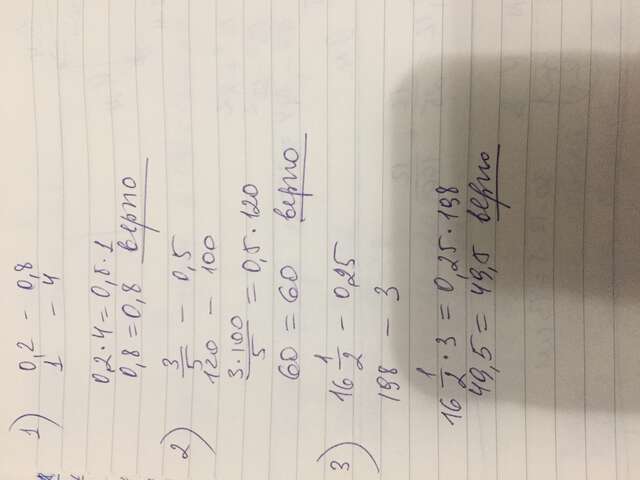 1) 0,2 - 0,8
1 - 4
0,2 · 4 = 0,8 · 1
0,8 = 0,8 верно
2) 3/5 - 0,5
120 - 100
3·100/5 = 0,5 · 120
60 = 60 верно
3) 16 1/2 - 0,25
198 - 3
16 1/2 · 3 = 0,25 · 198
49,5 = 49,5 верно